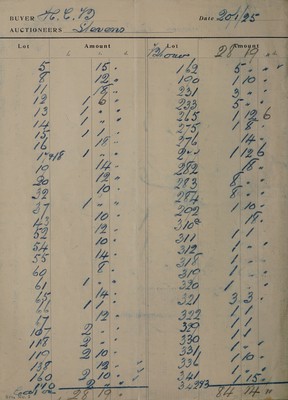 BUYER H.C.B Date 20/1/25
AUCTIONEERS Stevens
Lot Amount
5 15 "
8 12 "
11 18 "
12 1 6 "
13 1 " "
14 1 " "
15 1 1 "
16 18 "
17&18 1 " "
19 14 "
20 12 "
22 10 "
37 1 " "
43 10 "
52 12 "
54 10 "
55 14 "
60 8 "
61 1 " "
65 14 "
66 1 " "
67 12 "
107 2 " "
118 2 " "
119 2 10 "
138 12 "
160 2 10 "
110 2 " "
28 19 "
Lot Amount
28 19 "
162 5 " "
190 1 10 "
231 3 " "
233 5 " "
265 1 12 6
275 1 8 "
276 14 "
1 12 6
282 18 "
283 8 " "
284 8 " "
292 1 10 "
310a 18 "
311 1 1 "
312 1 "
318 1 1 "
319 1 "
320 1 "
321 3 3 "
322 1 1 "
329 1 1 "
330 1 1 "
331 1 10 "
336 1 "
341 1 15 "
84 14 "